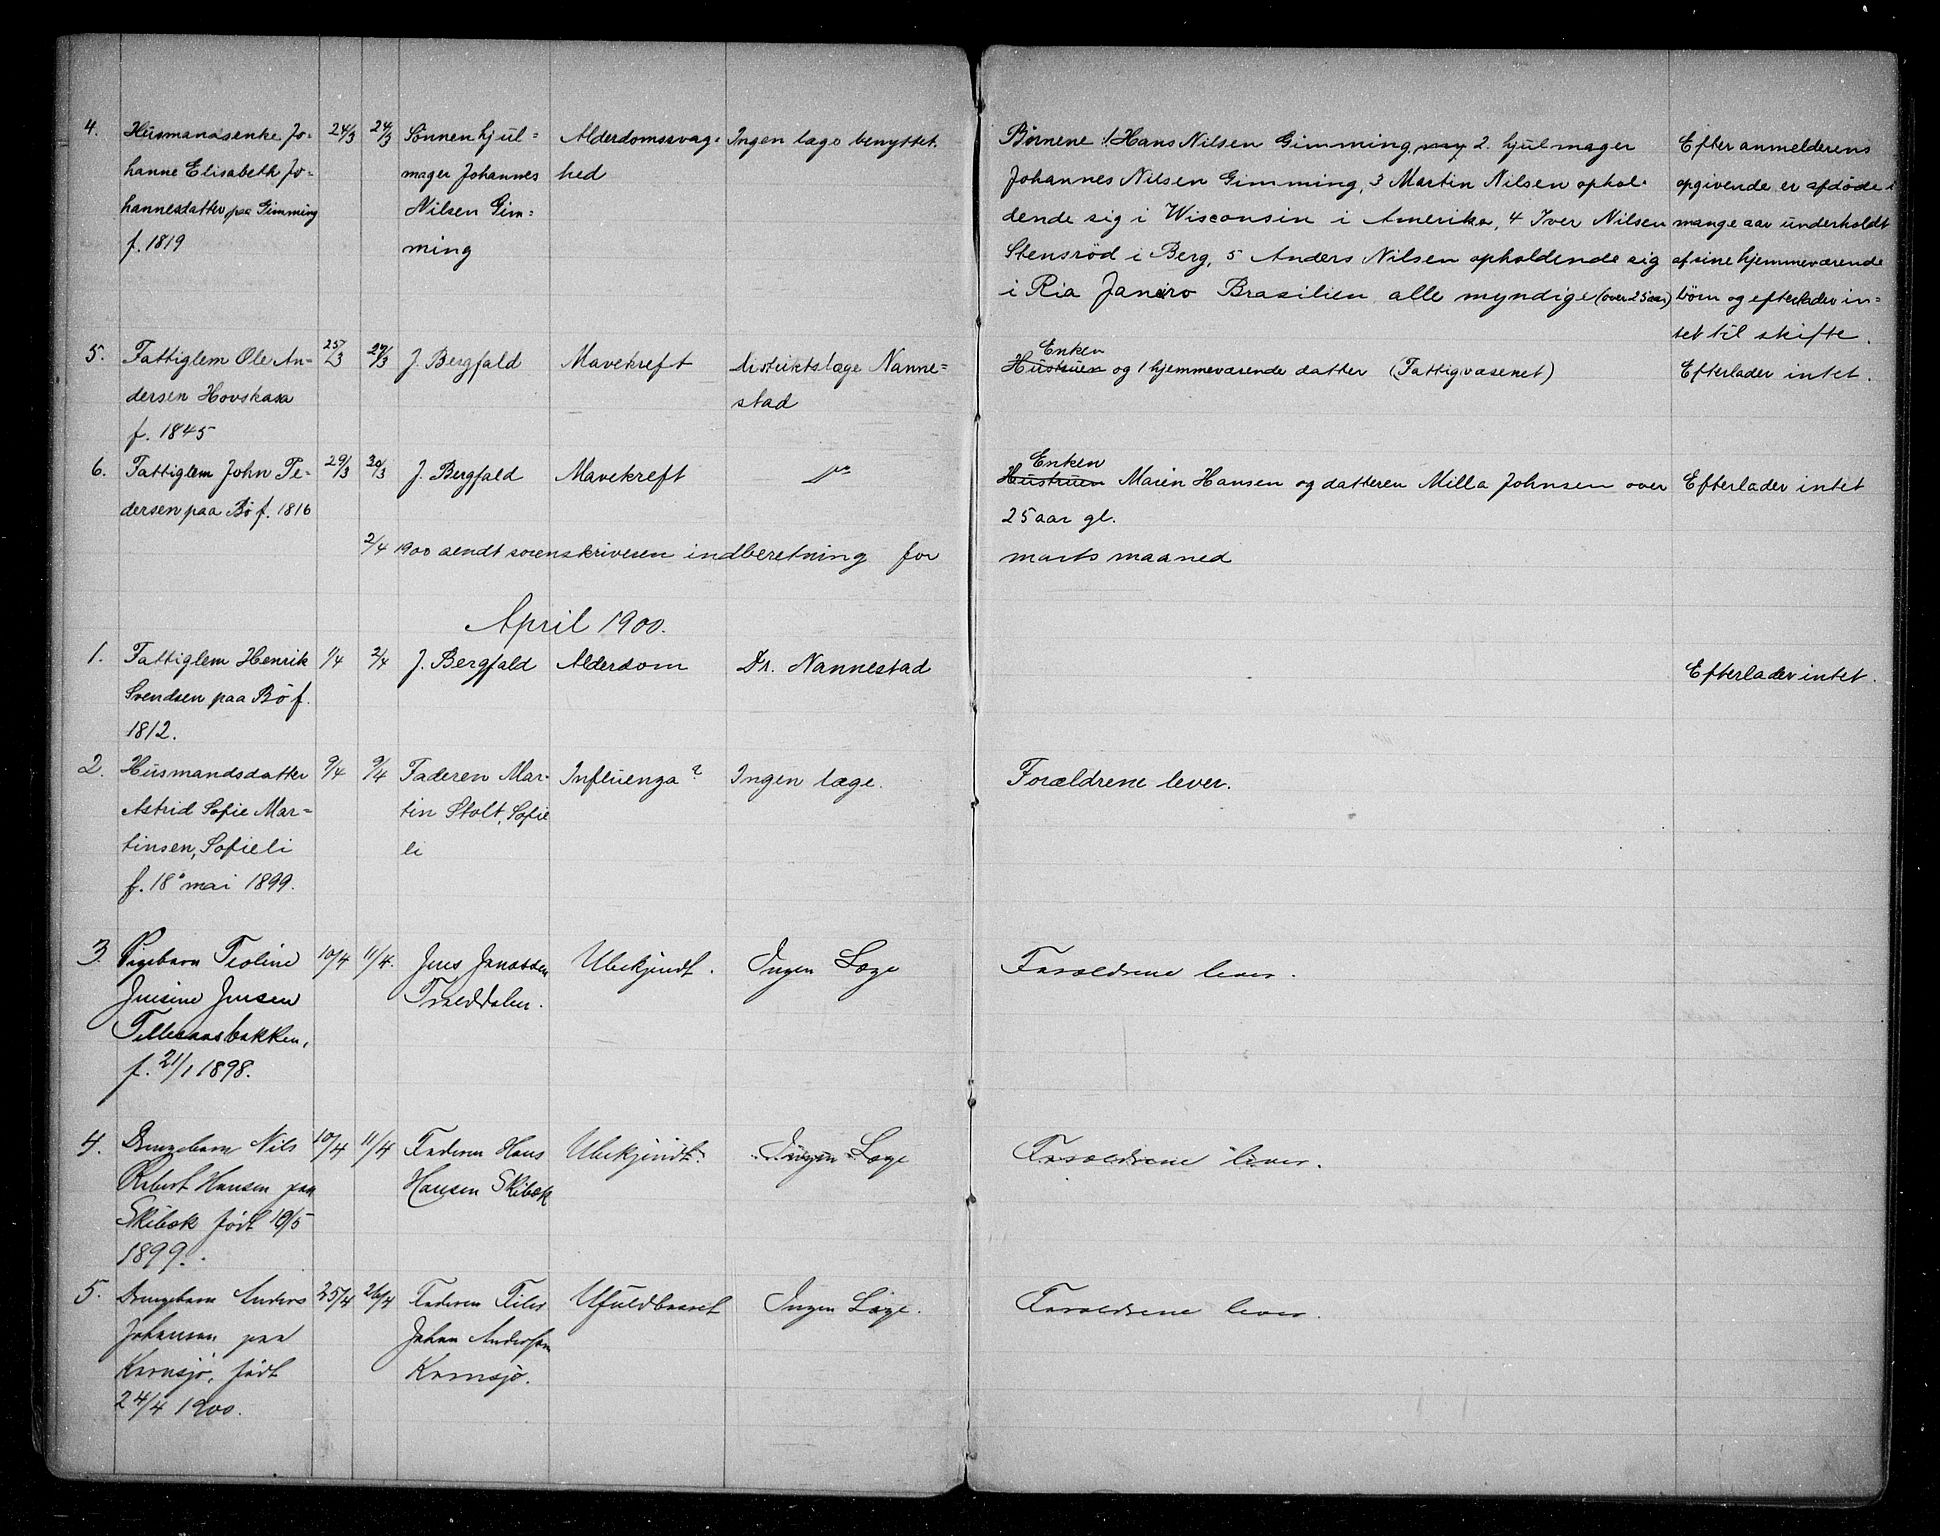 4. Husmandsenke Jo- 24/3 24/3 Sønnen hjul= Alderdomssvag= Ingen læge benyttet. Børnene 1. Hans Nilsen Gimming, 2. hjulmager Efter anmelderens
hanne Elisabeth Jo- mager Johannes hed Johannes Nilsen Gimming, 3 Martin Nilsen ophol- opgivende er afdøde i
hannesdatter paa Gimming Nilsen Gim= dende sig i Wisconsin i Amerika, 4 Iver Nilsen mange aar underholdt
f. 1819 ming Stensrød i Berg, 5 Anders Nilsen opholdende sig af sine hjemmeværende
i Ria Janero Brasilien alle myndige (over 25 aar) børn og efterlader in=
tet til skifte.
5. Fattiglem Ole An- 25/3 27/3 J. Bergfald Mavekreft distriktslæge Nanne= Enken
Hustruen og 1 hjemmeværende datter (Fattigvæsenet) Efterlader intet.
dersen Hovskasa stad
f. 1845
6. Fattiglem John Pe- 29/3 30/3 J. Bergfald Mavekreft Enken
Hustruen Maien Hansen og datteren Milla Johnsen over Efterlader intet
dersen paa Bø f. 1816 25 aar gl.
2/4 1900 sendt sorenskriveren indberetning for marts maaned
April 1900.
1. Fattiglem Henrik 1/4 2/4 J. Bergfald Alderdom Dr. Nannestad Efterlader intet.
Svendsen paa Bø f.
1812.
2. Husmandsdatter 9/4 9/4 Faderen Mar- Influenza? Ingen læge. Forældrene lever.
Astrid Sofie Mar= tin Stolt, Sofie
tinsen, Sofieli li
f. 18 mai 1899.
3. Pigebarn Teoline 10/4 11/4. Jens Jonassen Ubekjendt. Ingen Læge Forældrene lever.
Jensine Jensen Trolddalen.
Tillesaasbakken,
f. 21/1 1898.
4. Drengebarn Nils 10/4 11/4 Faderen Hans Ubekjendt. Ingen Læge Forældrene lever.
Robert Hansen paa Hansen Skibæk
Skibæk født 10/5
1899.
5. Drengebarn Anders 25/4 26/4 Faderen Ufuldbaaret Ingen Læge. Forældrene lever.
Johansen, paa Johan Anderssen
Kornsjø, født Kornsjø.
24/4 1900.